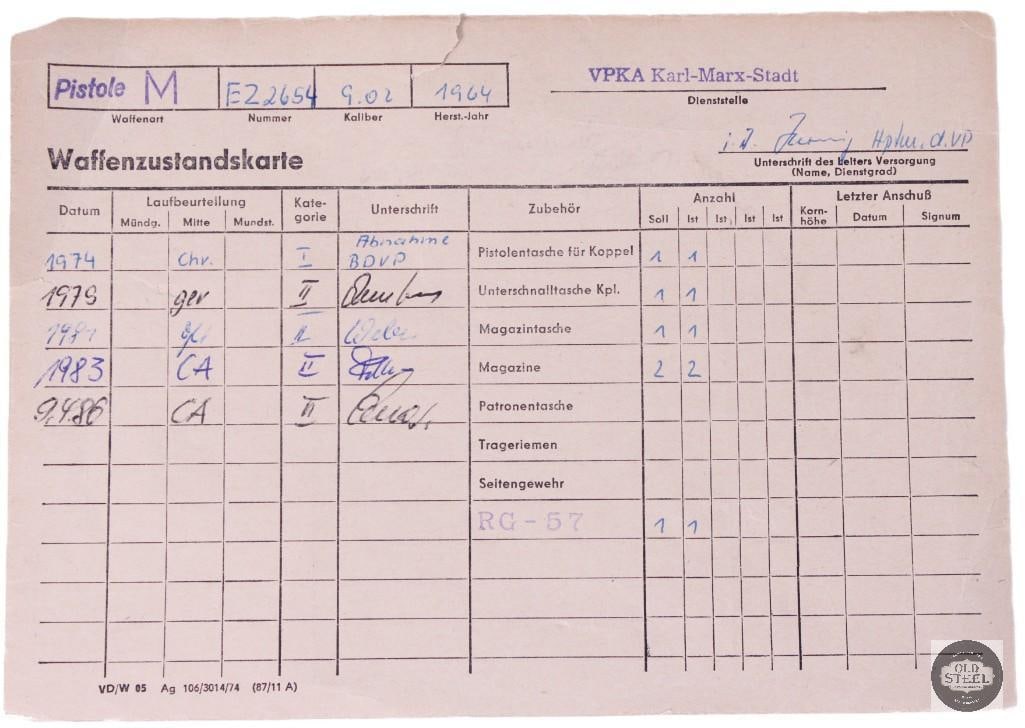 Pistole M EZ2654 9.02 1964
VPKA Karl-Marx-Stadt
Waffenart Nummer Kaliber Herst.-Jahr
Dienststelle
Hptm. d. VP
Waffenzustandskarte
Unterschrift des Leiters Versorgung
(Name, Dienstgrad)
Datum Laufbeurteilung Kate-gorie Unterschrift Zubehör Anzahl Letzter Anschuß
Mündg. Mitte Mundst. Soll Ist Ist Ist Ist Korn-höhe Datum Signum
1974 Chr. I Abnahme BDVP Pistolentasche für Koppel 1 1
1979 ger II Unterschnalltasche Kpl. 1 1
Magazintasche 1 1
1983 CA II Magazine 2 2
9.4.86 CA II Patronentasche
Trageriemen
Seitengewehr
RG-57 1 1
VD/W 05 Ag 106/3014/74 (87/11 A)
OLD
STEEL